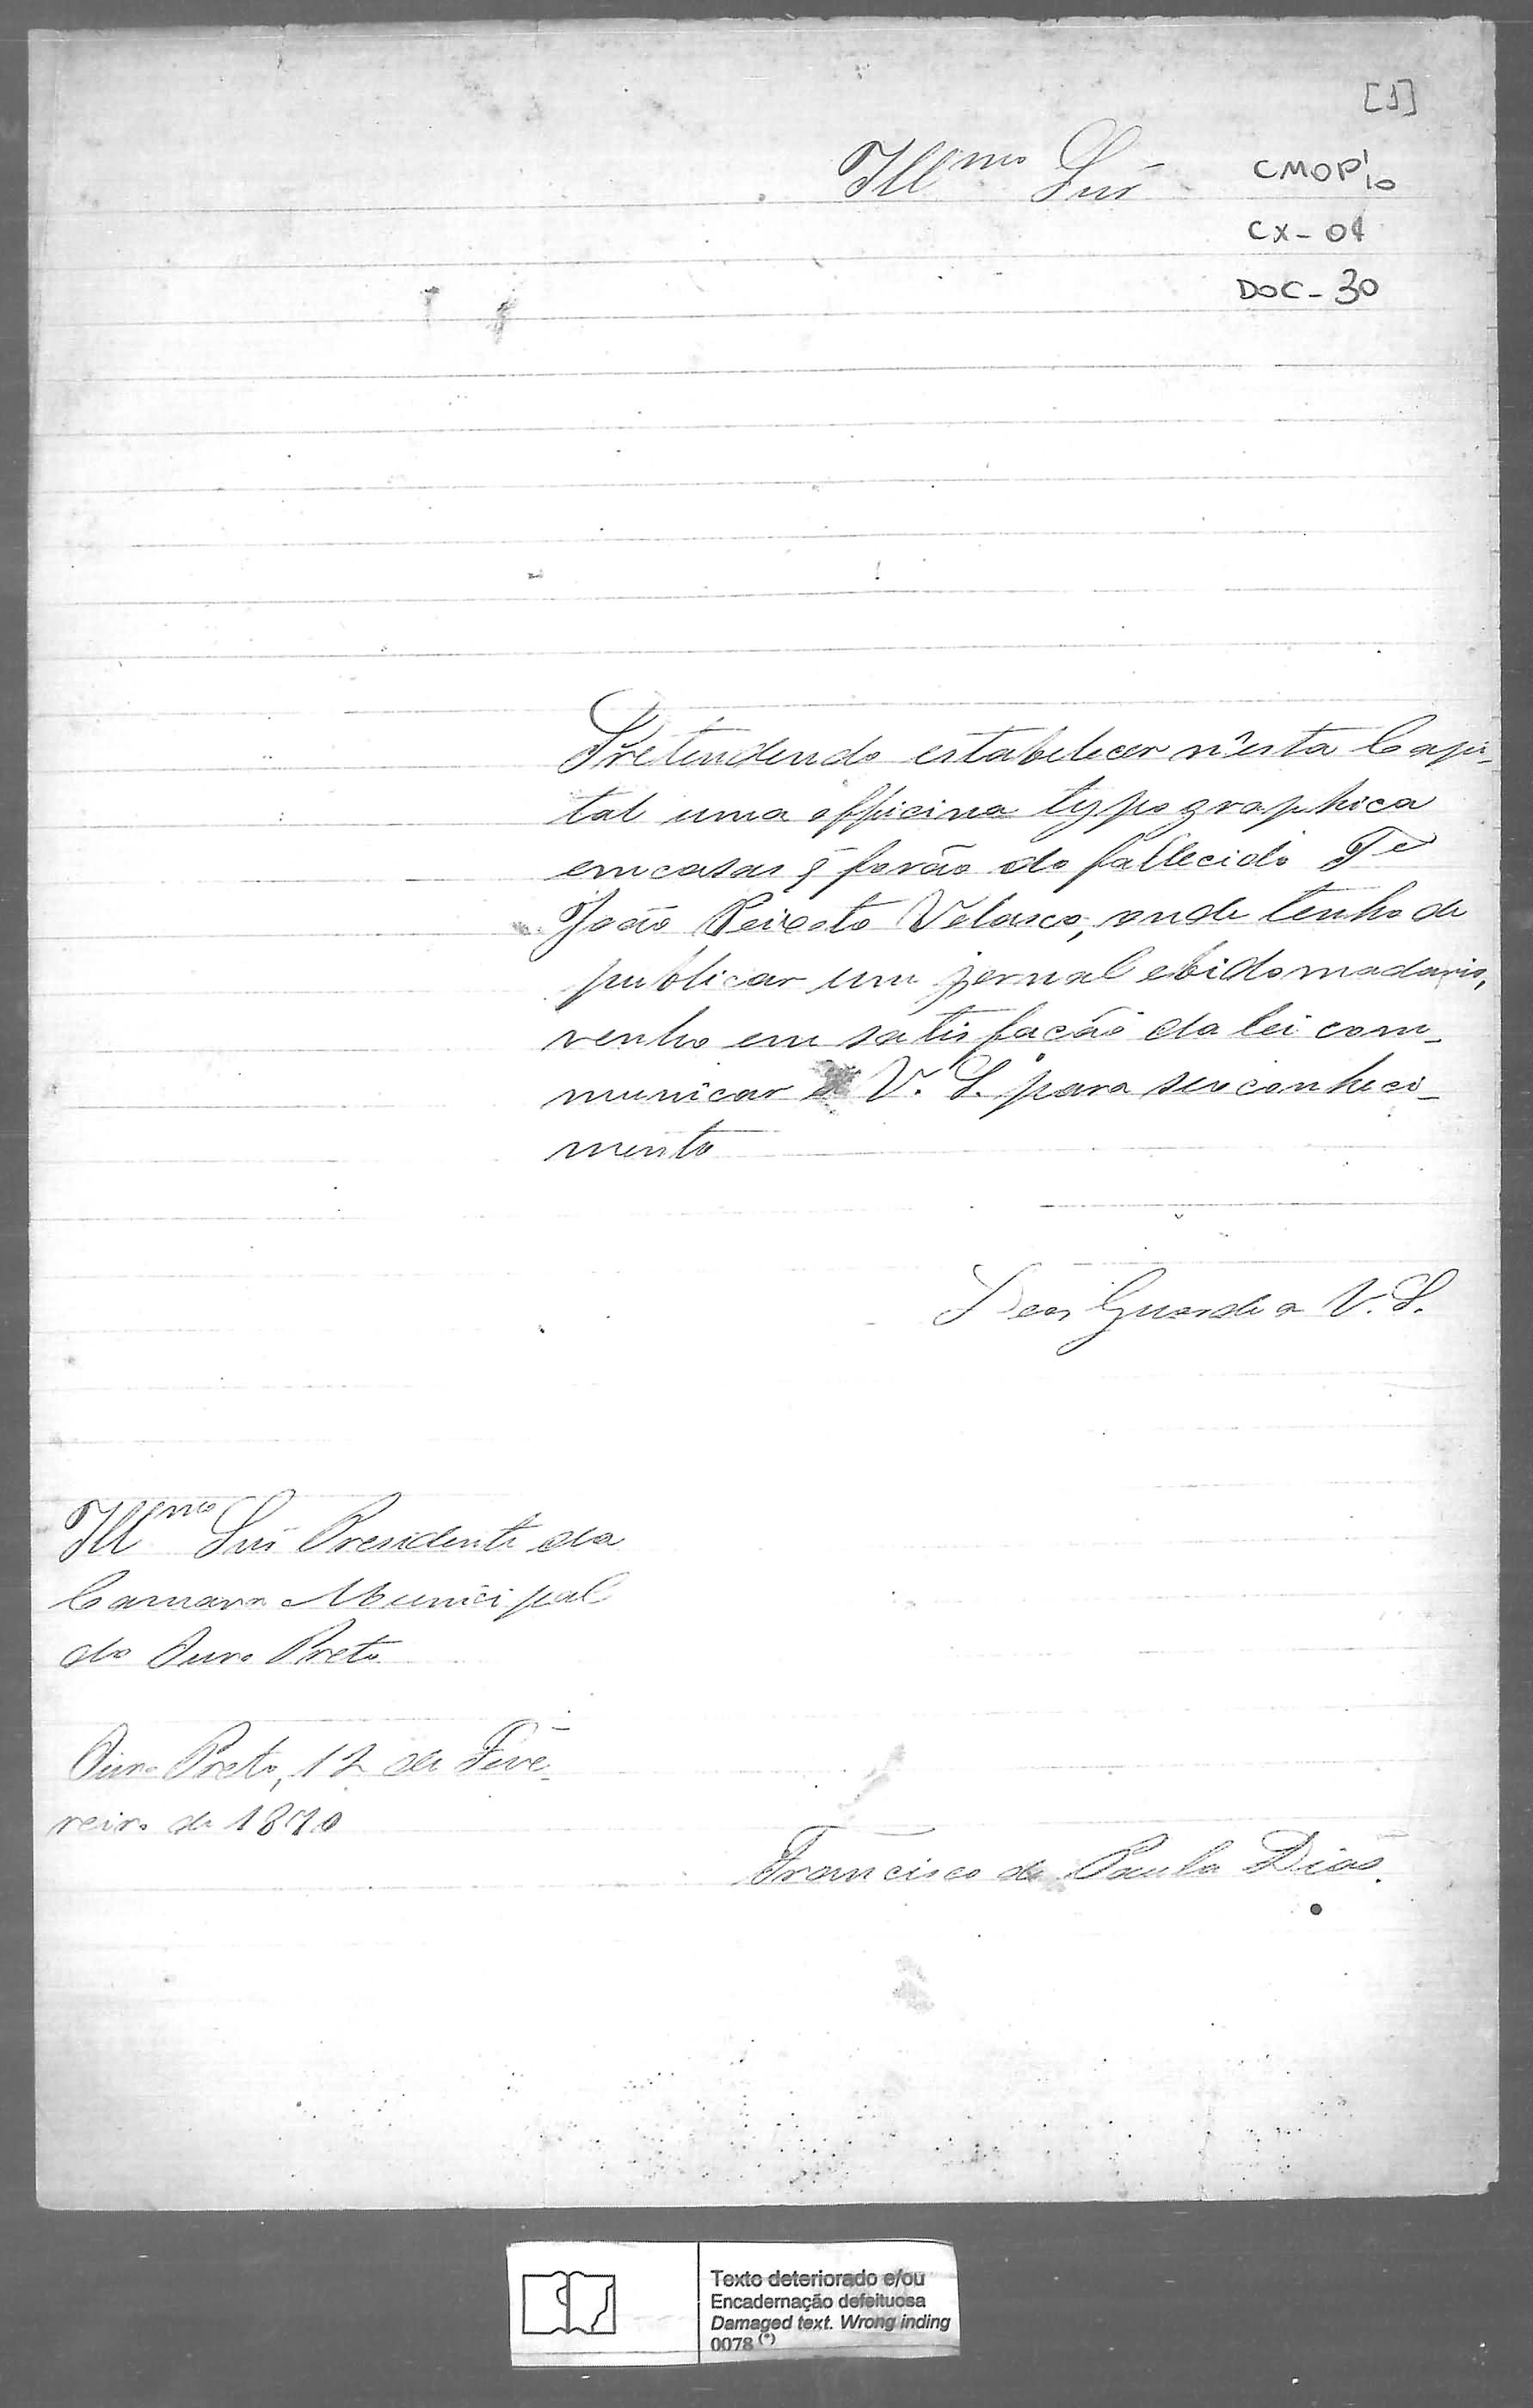 [1]
Illmo Snr
CMOP 1/10
CX-04
DOC-30
Pretendendo estabelecer n'esta Capi-
tal uma officina typographica
em casas q̃ forão do fallecido Te
João Peixoto Velasco, onde tenho de
publicar um jornal ebidomadario,
venho em satisfacão da lei com-
municar a V. S. para seu conheci-
mento
Deos Guarde a V. S.
Illmo Snr Presidente da
Camara Municipal
do Ouro Preto
Ouro Preto, 12 de Feve-
reiro de 1870
Francisco de Paula Dias.
Texto deteriorado e/ou
Encadernação defeituosa
Damaged text. Wrong inding
0078 (*)